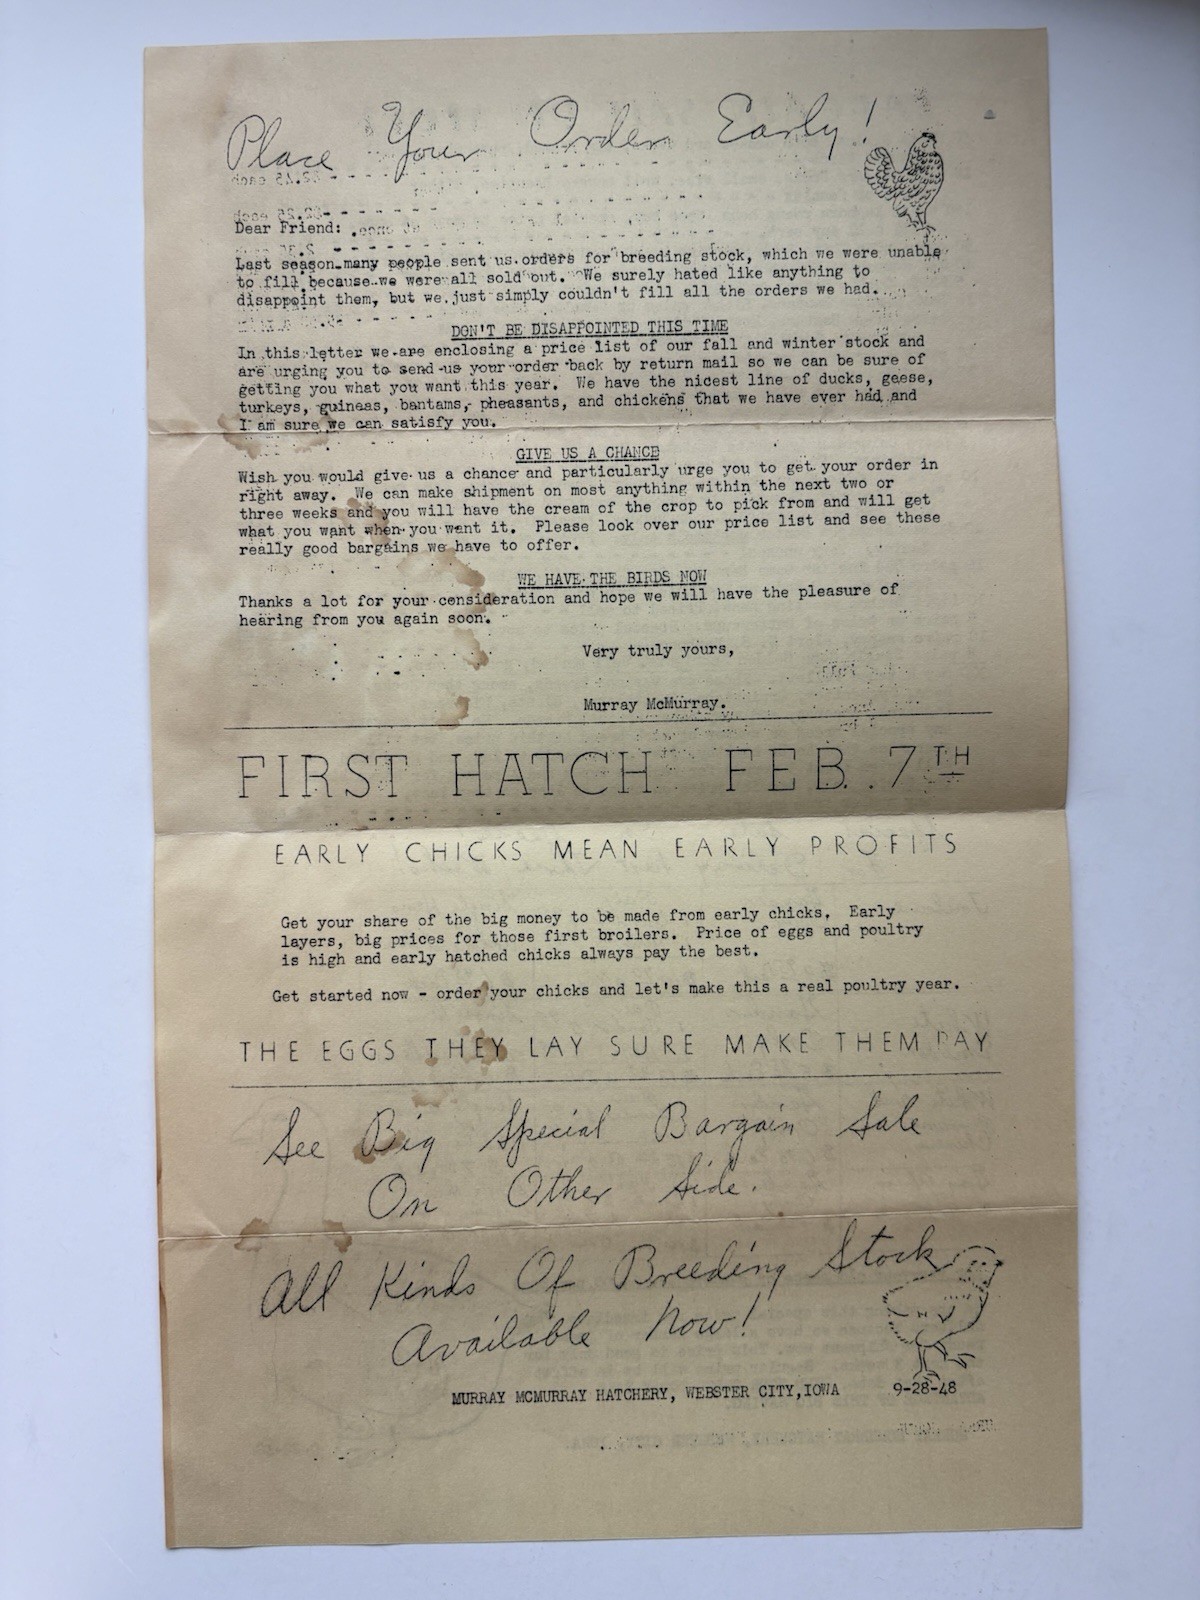 Place Your Order Early!
Dear Friend:
Last season many people sent us orders for breeding stock, which we were unable
to fill because we were all sold out. We surely hated like anything to
disappoint them, but we just simply couldn't fill all the orders we had.
DON'T BE DISAPPOINTED THIS TIME
In this letter we are enclosing a price list of our fall and winter stock and
are urging you to send us your order back by return mail so we can be sure of
getting you what you want this year. We have the nicest line of ducks, geese,
turkeys, guineas, bantams, pheasants, and chickens that we have ever had and
I am sure we can satisfy you.
GIVE US A CHANCE
Wish you would give us a chance and particularly urge you to get your order in
right away. We can make shipment on most anything within the next two or
three weeks and you will have the cream of the crop to pick from and will get
what you want when you want it. Please look over our price list and see these
really good bargains we have to offer.
WE HAVE THE BIRDS NOW
Thanks a lot for your consideration and hope we will have the pleasure of
hearing from you again soon.
Very truly yours,
Murray McMurray.
FIRST HATCH FEB. 7TH
EARLY CHICKS MEAN EARLY PROFITS
Get your share of the big money to be made from early chicks. Early
layers, big prices for those first broilers. Price of eggs and poultry
is high and early hatched chicks always pay the best.
Get started now - order your chicks and let's make this a real poultry year.
THE EGGS THEY LAY SURE MAKE THEM PAY
See Big Special Bargain Sale
On Other Side.
All Kinds Of Breeding Stock
Available Now!
MURRAY MCMURRAY HATCHERY, WEBSTER CITY, IOWA 9-28-48